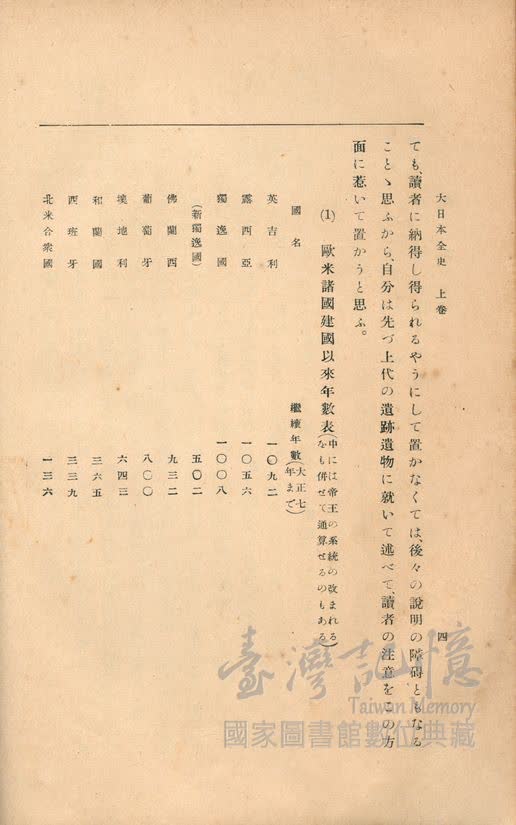 大日本全史 上卷
四
ても、讀者に納得し得られるやうにして置かなくては、後々の說明の障碍ともなる
ことゝ思ふから、自分は先づ上代の遺跡遺物に就いて述べて、讀者の注意をこの方
面に惹いて置かうと思ふ。
(1) 歐米諸國建國以來年數表(中には帝王の系統の改まれるをも併せて通算せるのもある)
國名 繼續年數(大正七年まで)
英吉利 一〇九二
露西亞 一〇五六
獨逸國 一〇〇八
(新獨逸國) 五〇二
佛蘭西 九三二
葡萄牙 八〇〇
墺地利 六四三
和蘭國 三六五
西班牙 三三九
北米合衆國 一三六
臺灣記憶
Taiwan Memory
國家圖書館數位典藏